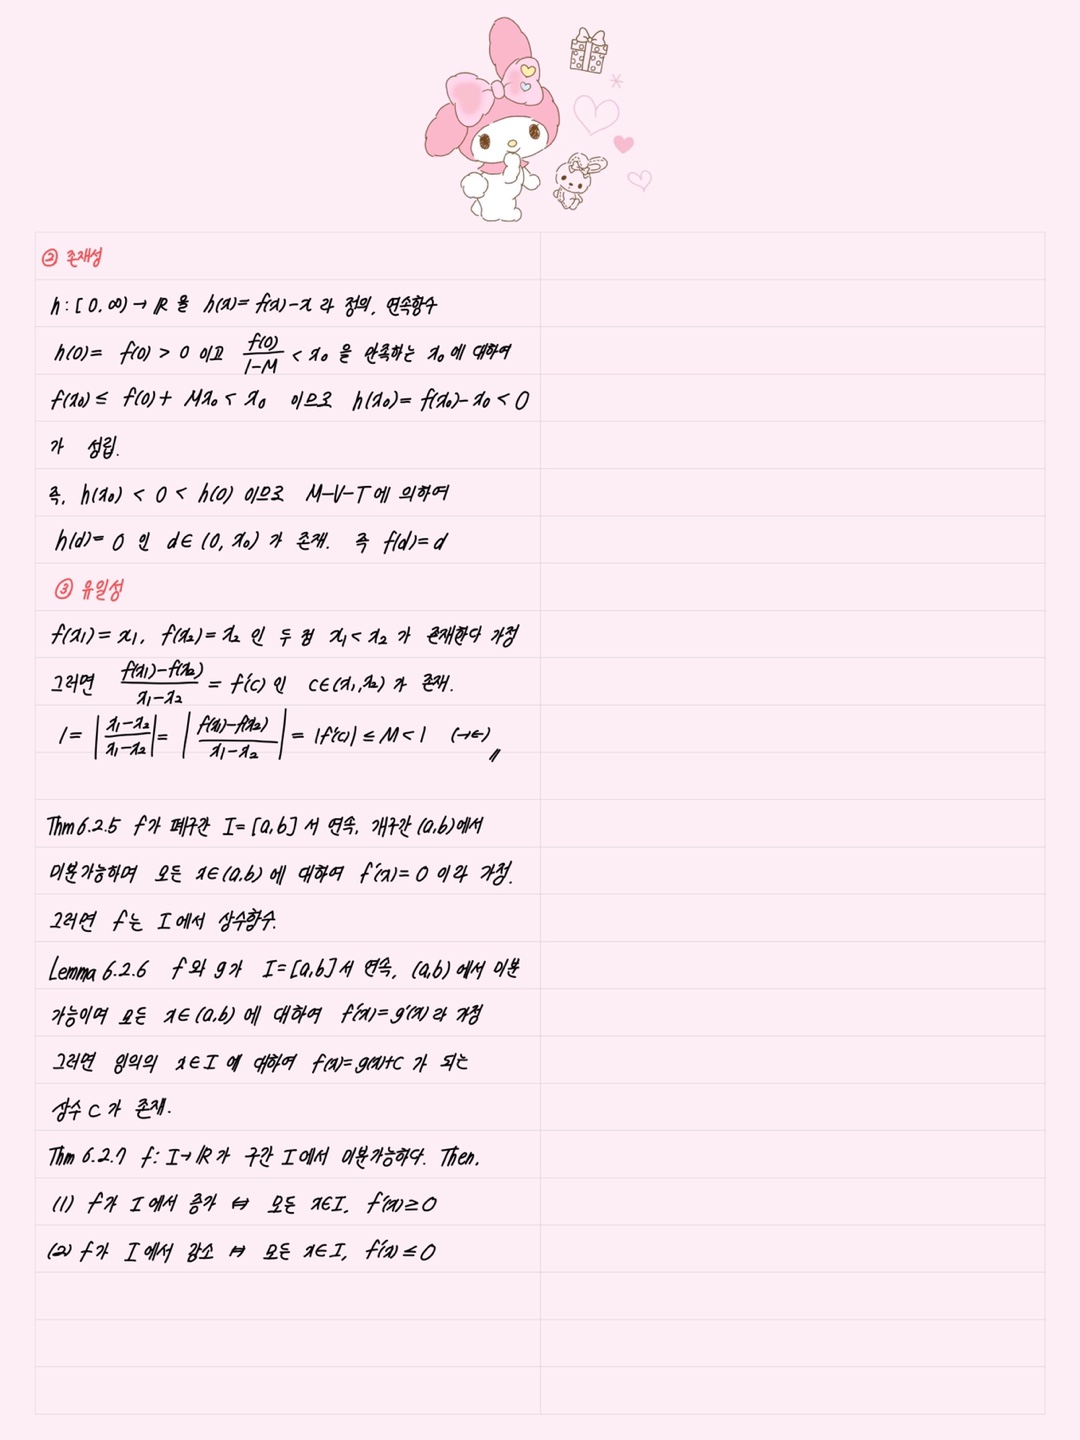 ② 존재성
h : [0, ∞) → ℝ 을 h(x) = f(x) - x 라 정의. 연속함수
h(0) = f(0) > 0 이고 f(0)/(1-M) < x₀ 을 만족하는 x₀ 에 대하여
f(x₀) ≤ f(0) + Mx₀ < x₀ 이므로 h(x₀) = f(x₀) - x₀ < 0
가 성립.
즉, h(x₀) < 0 < h(0) 이므로 M-V-T 에 의하여
h(d) = 0 인 d ∈ (0, x₀) 가 존재. 즉 f(d) = d
③ 유일성
f(x₁) = x₁, f(x₂) = x₂ 인 두 점 x₁ < x₂ 가 존재한다 가정
그러면 (f(x₁)-f(x₂))/(x₁-x₂) = f'(c) 인 c∈(x₁,x₂) 가 존재.
1 = |(x₁-x₂)/(x₁-x₂)| = |(f(x₁)-f(x₂))/(x₁-x₂)| = |f'(c)| ≤ M < 1 (→←) //
Thm 6.2.5 f가 폐구간 I = [a,b] 서 연속, 개구간 (a,b)에서
미분가능하며 모든 x∈(a,b) 에 대하여 f'(x) = 0 이라 가정.
그러면 f는 I에서 상수함수.
Lemma 6.2.6 f와 g가 I=[a,b]서 연속, (a,b) 에서 미분
가능이며 모든 x∈(a,b) 에 대하여 f'(x) = g'(x) 라 가정
그러면 임의의 x∈I 에 대하여 f(x) = g(x)+C 가 되는
상수 C가 존재.
Thm 6.2.7 f : I → ℝ가 구간 I에서 미분가능하다. Then,
(1) f가 I에서 증가 ⇔ 모든 x∈I, f'(x) ≥ 0
(2) f가 I에서 감소 ⇔ 모든 x∈I, f'(x) ≤ 0